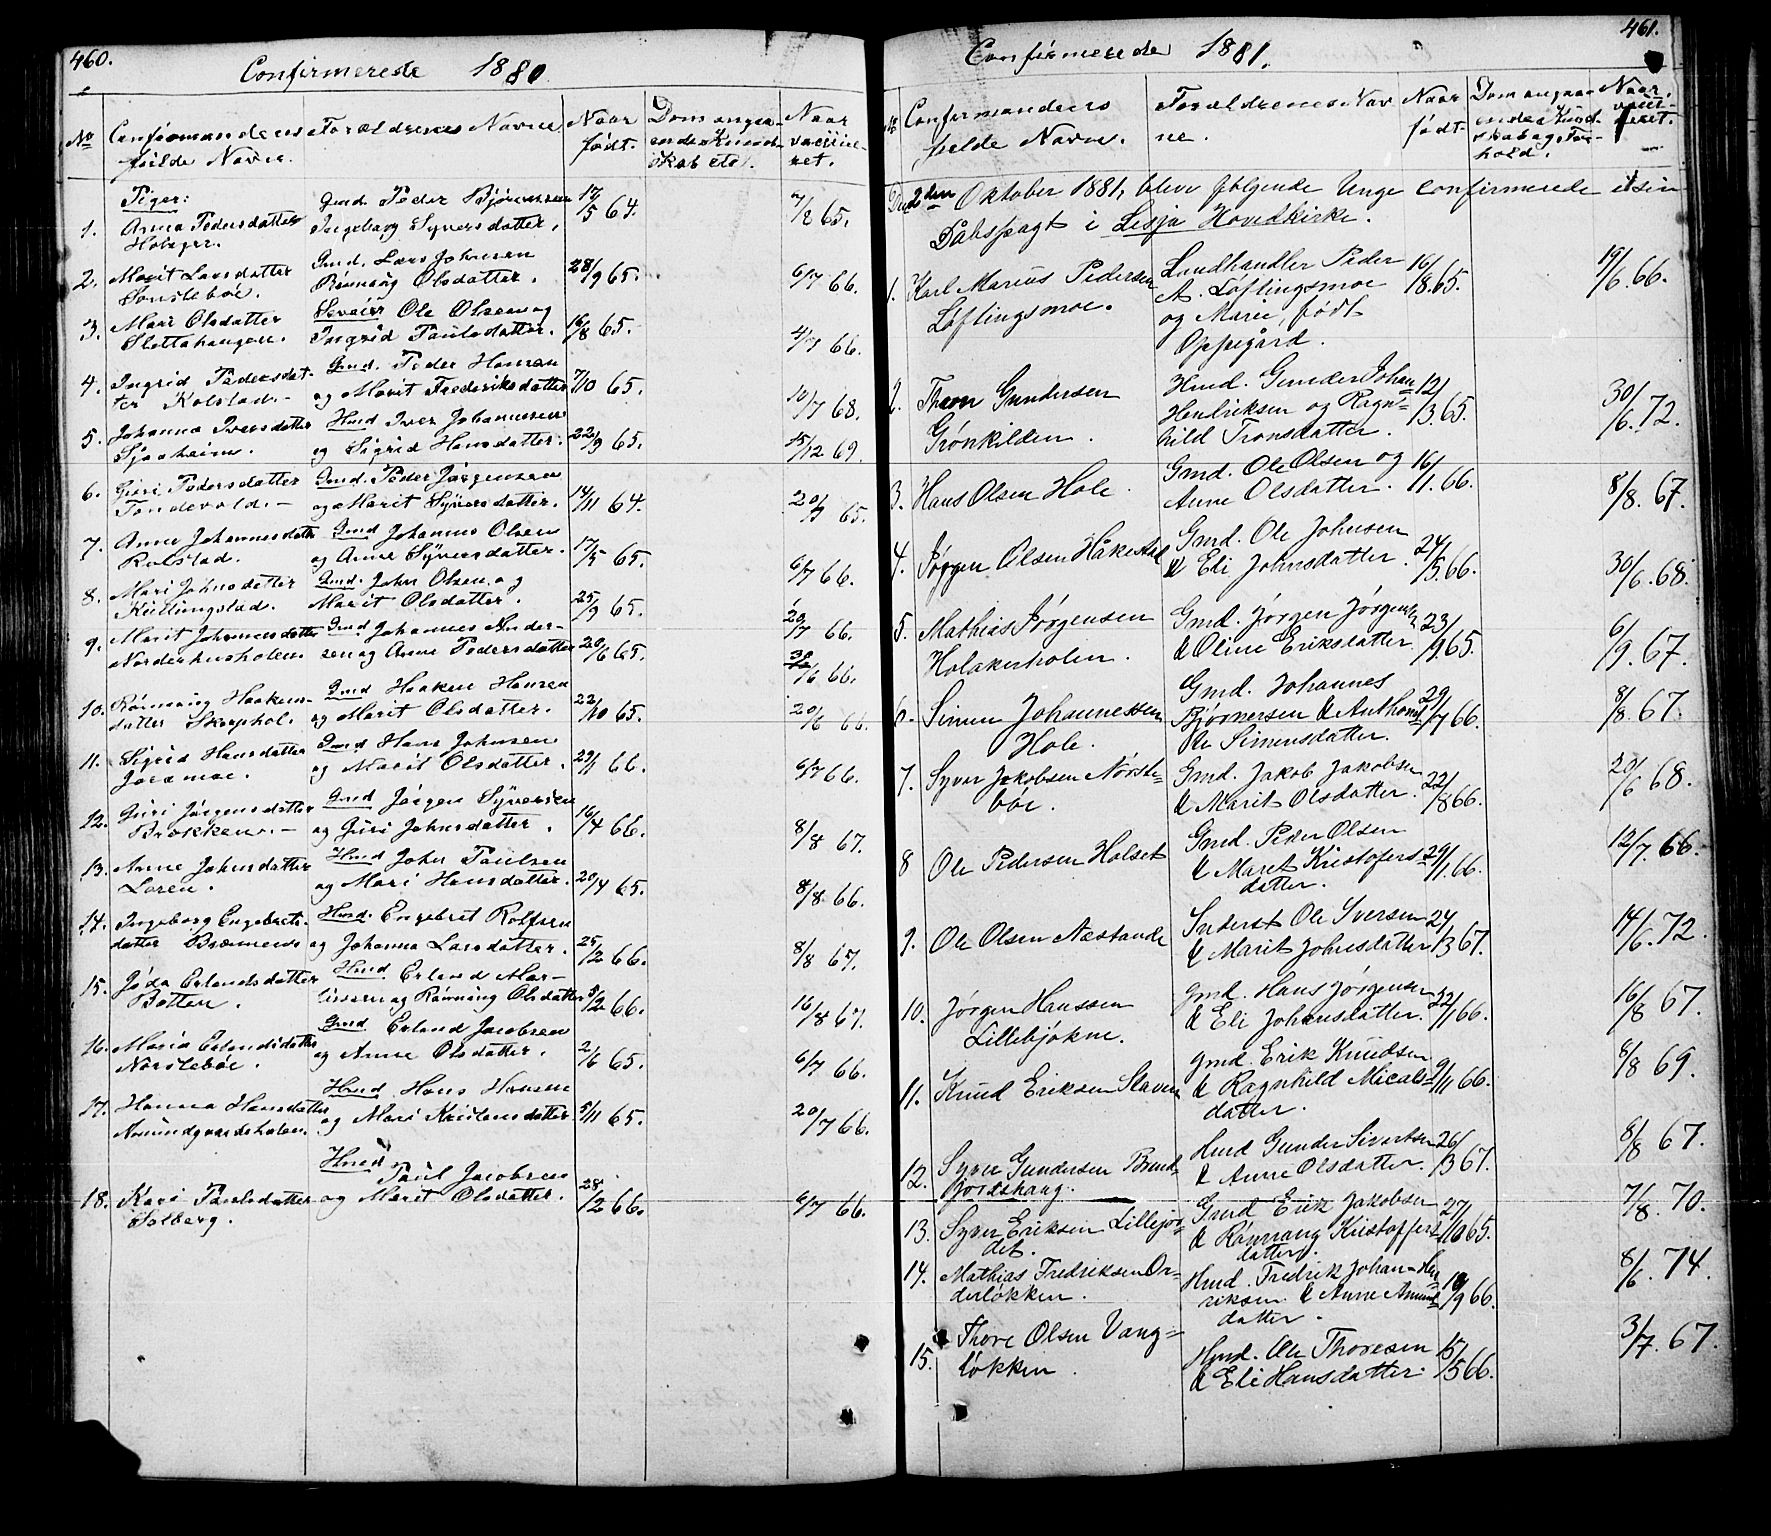 460.
Confirmerede 1880
No
Confirmandens
fulde Navn.
Forældrenes Navne
Naar
født.
Dom angaa-
ende Kundskab etc.
Naar
vaccineret.
Piger:
1. Anna Pedersdatter
Gmd Peder Bjørnersen
Ingeborg Syversdatter,
17/5 64.
7/8 65.
2. Marit Larsdatter
Gmd. Lars Johnsen
Rønnaug Olsdatter.
28/9 65.
6/7 66.
3. Mari Olsdatter
Slettahaugen.
Ole Olsen og
Ingrid Paulsdatter.
16/8 65.
4/7 66.
4. Ingrid Pedersdat-
ter Kolstad.
Gmd. Peder Hansen
og Marit Frederiksdatter
7/10 65.
10/7 68.
5. Johanna Iversdatter
Sjaaheim.
Hmd Iver Johannesen
og Sigrid Hansdatter.
22/9 65.
15/12 69.
6. Guri Pedersdatter
Tondevold.
Gmd. Peder Jørgensen
og Marit Syversdatter.
14/11 64.
20/7 65.
7. Anne Johannesdattr
Rolstad.
Gmd Johannes Olsen
og Anne Syversdatter.
17/5 65.
6/7 66.
8. Mari Johnsdatter
Killingstad.
Gmd. John Olsen og
Marit Olsdatter.
25/9 65.
20/7 66.
9. Marit Johannesdatter
Nordenhusholen.
Gmd Johannes Ander-
sen og Anne Pedersdatter
20/6 65.
30/6 66.
10. Rønnaug Haakens-
datter Skarphol.
Gmd Haaken Hansen
og Marit Olsdatter.
22/10 65.
20/6 66.
11. Sigrid Hansdatter
Joramoe.
Gmd Hans Johnsen
og Marit Olsdatter.
29/1 66.
6/7 66.
12. Guri Jørgensdatter
Brøkken.
Gmd Jørgen Syversen
og Guri Johnsdatter.
16/4 66.
8/8 67.
13. Anne Johnsdatter
Loren.
Hmd John Paulsen
og Mari Hansdatter.
20/4 65.
8/8 66.
14. Ingeborg Engebrets-
datter Brænnen
Hmd. Engebret Rolfsen
og Johanna Larsdatter.
25/2 66.
8/8 67.
15. Jøda Erlandsdatter
Botten.
Hmd. Erland Mar-
iussen og Rønnaug Olsdatter
5/2 66.
16/8 67.
16. Maria Erlandsdatter
Norstebøe.
Gmd Erland Jacobsen
og Anne Olsdatter.
2/6 65.
6/7 66.
17. Hanna Hansdatter
Hmd. Hans Hansen
og Mari Kristensdatter
5/11 65.
20/7 66.
18. Kari Paulsdatter
Solberg.
Hmd Paul Jacobsen
og Marit Olsdatter.
28/2 66.
6/7 66.
461.
Confirmerede 1881.
Confirmandens
fulde Navn.
Forældrenes Nav
ne.
Naar
født.
Dom angaa-
ende Kund-
skab og For-
hold.
Naar
vacci-
neret.
Den 2den Oktober 1881, bleve følgende Unge confirmerede i sin
Daabspagt i Lesja Hovedkirke.
1. Karl Marius Pedersen
Løftingsmoe.
Landhandler Peder
A. Løftingsmoe
og Marie, født
Oppegård.
16/8. 65.
19/6. 66.
2. Thron Gundersen
Grønkilden.
Hmd. Gunder Johan
Henriksen og Ragn-
hild Tronsdatter.
12/3. 65.
30/6. 72.
3. Hans Olsen Hole.
Gmd. Ole Olsen og
Anne Olsdatter.
16/11. 66.
8/8. 67.
4. Jørgen Olsen Håkestad
Gmd. Ole Johnsen
& Eli Johnsdatter.
24/5. 66.
30/6. 68.
5. Mathias Jørgensen
Holakerholen.
Gmd. Jørgen Jørgensen
& Oline Eriksdatter
23/9. 65.
6/9. 67.
6. Simen Johannessen
Hole.
Gmd. Johannes
Bjørnersen & Anthon-
Simensdatter.
29/7 66.
8/8. 67.
7. Syver Jakobsen Nørste-
bøe.
Gmd. Jakob Jakobsen
& Marit Olsdatter.
22/8 66.
20/6 68.
8 Ole Pedersen Holset
Gmd. Peder Olsen
& Maret Kristofers-
datter.
29/1. 66.
12/7. 66.
9. Ole Olsen Næstande
Inderst Ole Iversen
& Marit Johnsdatter
24/3 67.
14/6. 72.
10. Jørgen Hanssen
Lillebjøkne.
Gmd. Hans Jørgensen
& Eli Johansdatter.
22/1 66.
16/8 67.
11. Knud Eriksen Slaven
Gmd. Erik Knudsen
& Ragnhild Micals-
datter.
9/11 66.
8/8 69.
12. Syver Gundersen Brend-
jordshaug.
Hmd Gunder Sivertsen
& Anne Olsdatter.
26/3 67.
8/8 67.
13. Syver Eriksen Lillejor-
det.
Gmd Erik Jakobsen
& Rønnaug Kristoffers-
datter.
27/10 65.
7/8. 70.
14. Mathias Fredriksen Or-
derløkken.
Hmd. Fredrik Johan Hen-
riksen & Anne Amund-
datter.
10/9 66.
8/6. 74.
15. Thore Olsen Vang-
løkken.
Hmd. Ole Thoresen
& Eli Hansdatter.
15/5 66.
3/7. 67.